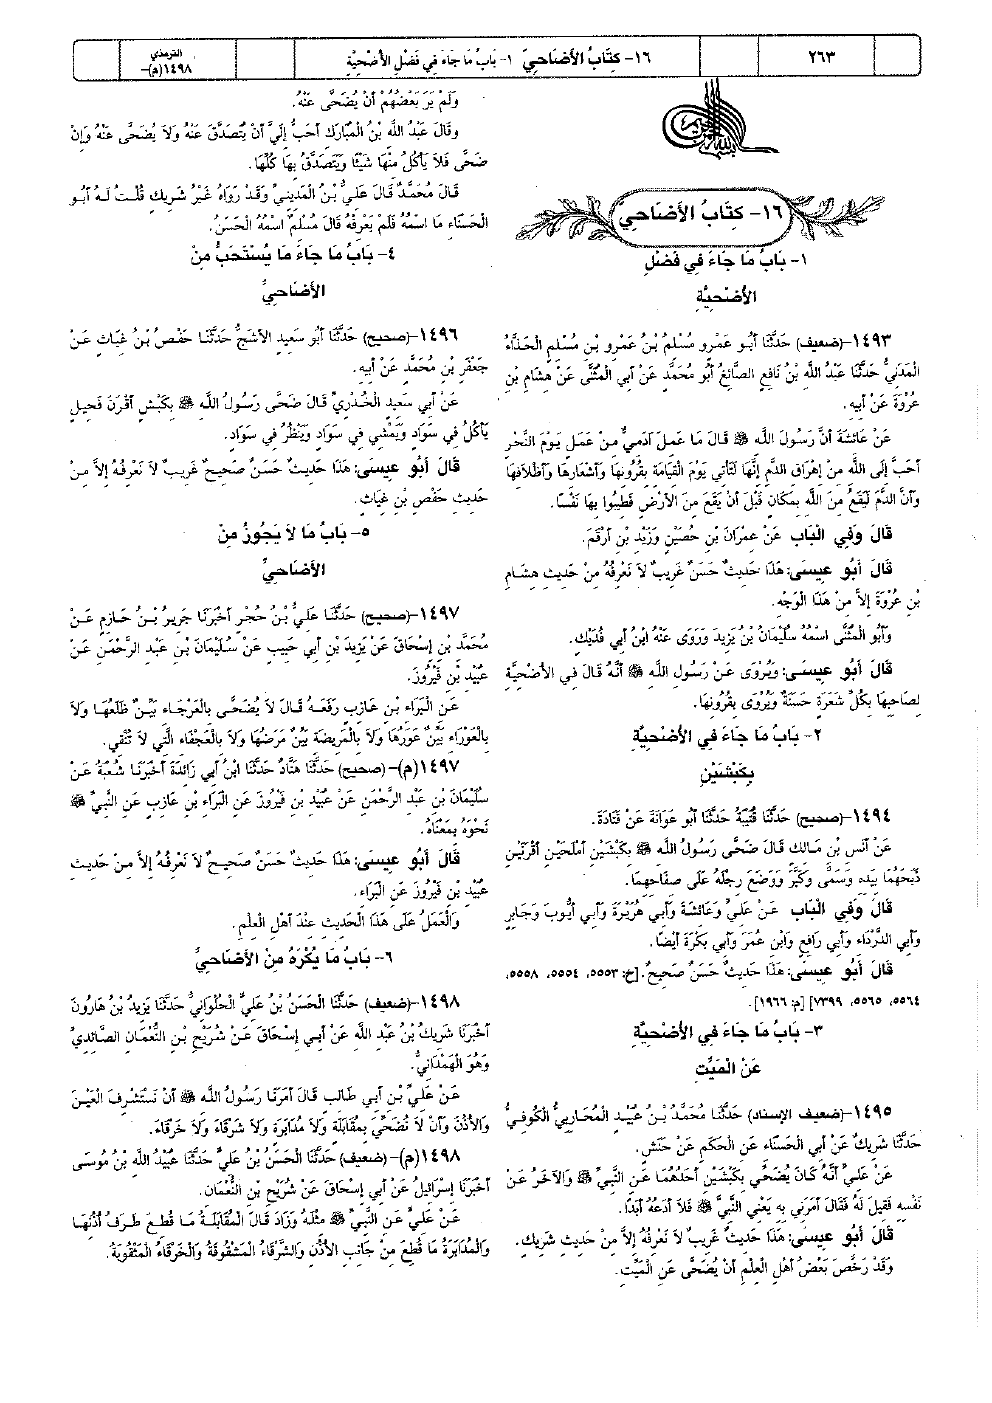 ٢٦٣
١٦- كِتَابُ الأَضَاحِيِّ ١- بَابُ مَا جَاءَ فِي فَضْلِ الأُضْحِيَّةِ
الترمذي
١٤٩٨(م)-
١٦- كِتَابُ الأَضَاحِيِّ
١- بَابُ مَا جَاءَ فِي فَضْلِ
الأُضْحِيَّةِ
١٤٩٣-(ضعيف) حَدَّثَنَا أَبُو عَمْرٍو مُسْلِمُ بْنُ عَمْرِو بْنِ مُسْلِمٍ الْحَذَّاءُ
الْمَدَنِيُّ حَدَّثَنَا عَبْدُ اللَّهِ بْنُ نَافِعٍ الصَّائِغُ أَبُو مُحَمَّدٍ عَنْ أَبِي الْمُثَنَّى عَنْ هِشَامِ بْنِ
عُرْوَةَ عَنْ أَبِيهِ.
عَنْ عَائِشَةَ أَنَّ رَسُولَ اللَّهِ ﷺ قَالَ مَا عَمِلَ آدَمِيٌّ مِنْ عَمَلٍ يَوْمَ النَّحْرِ
أَحَبَّ إِلَى اللَّهِ مِنْ إِهْرَاقِ الدَّمِ إِنَّهَا لَتَأْتِي يَوْمَ الْقِيَامَةِ بِقُرُونِهَا وَأَشْعَارِهَا وَأَظْلاَفِهَا
وَأَنَّ الدَّمَ لَيَقَعُ مِنَ اللَّهِ بِمَكَانٍ قَبْلَ أَنْ يَقَعَ مِنَ الأَرْضِ فَطِيبُوا بِهَا نَفْسًا.
قَالَ وَفِي الْبَاب عَنْ عِمْرَانَ بْنِ حُصَيْنٍ وَزَيْدِ بْنِ أَرْقَمَ.
قَالَ أَبُو عِيسَى: هَذَا حَدِيثٌ حَسَنٌ غَرِيبٌ لاَ نَعْرِفُهُ مِنْ حَدِيثِ هِشَامِ
بْنِ عُرْوَةَ إِلاَّ مِنْ هَذَا الْوَجْهِ.
وَأَبُو الْمُثَنَّى اسْمُهُ سُلَيْمَانُ بْنُ يَزِيدَ وَرَوَى عَنْهُ ابْنُ أَبِي فُدَيْكٍ.
قَالَ أَبُو عِيسَى: وَيُرْوَى عَنْ رَسُولِ اللَّهِ ﷺ أَنَّهُ قَالَ فِي الأُضْحِيَّةِ
لِصَاحِبِهَا بِكُلِّ شَعَرَةٍ حَسَنَةٌ وَيُرْوَى بِقُرُونِهَا.
٢- بَابُ مَا جَاءَ فِي الأُضْحِيَّةِ
بِكَبْشَيْنِ
١٤٩٤-(صحيح) حَدَّثَنَا قُتَيْبَةُ حَدَّثَنَا أَبُو عَوَانَةَ عَنْ قَتَادَةَ.
عَنْ أَنَسِ بْنِ مَالِكٍ قَالَ ضَحَّى رَسُولُ اللَّهِ ﷺ بِكَبْشَيْنِ أَمْلَحَيْنِ أَقْرَنَيْنِ
ذَبَحَهُمَا بِيَدِهِ وَسَمَّى وَكَبَّرَ وَوَضَعَ رِجْلَهُ عَلَى صِفَاحِهِمَا.
قَالَ وَفِي الْبَاب عَنْ عَلِيٍّ وَعَائِشَةَ وَأَبِي هُرَيْرَةَ وَأَبِي أَيُّوبَ وَجَابِرٍ
وَأَبِي الدَّرْدَاءِ وَأَبِي رَافِعٍ وَابْنِ عُمَرَ وَأَبِي بَكْرَةَ أَيْضًا.
قَالَ أَبُو عِيسَى: هَذَا حَدِيثٌ حَسَنٌ صَحِيحٌ. [خ: ٥٥٥٣، ٥٥٥٤، ٥٥٥٨،
٥٥٦٤، ٥٥٦٥، ٧٣٩٩] [م: ١٩٦٦].
٣- بَابُ مَا جَاءَ فِي الأُضْحِيَّةِ
عَنْ الْمَيِّتِ
١٤٩٥-(ضعيف الإسناد) حَدَّثَنَا مُحَمَّدُ بْنُ عُبَيْدٍ الْمُحَارِبِيُّ الْكُوفِيُّ
حَدَّثَنَا شَرِيكٌ عَنْ أَبِي الْحَسْنَاءِ عَنِ الْحَكَمِ عَنْ حَنَشٍ.
عَنْ عَلِيٍّ أَنَّهُ كَانَ يُضَحِّي بِكَبْشَيْنِ أَحَدُهُمَا عَنِ النَّبِيِّ ﷺ وَالآخَرُ عَنْ
نَفْسِهِ فَقِيلَ لَهُ فَقَالَ أَمَرَنِي بِهِ يَعْنِي النَّبِيَّ ﷺ فَلاَ أَدَعُهُ أَبَدًا.
قَالَ أَبُو عِيسَى: هَذَا حَدِيثٌ غَرِيبٌ لاَ نَعْرِفُهُ إِلاَّ مِنْ حَدِيثِ شَرِيكٍ.
وَقَدْ رَخَّصَ بَعْضُ أَهْلِ الْعِلْمِ أَنْ يُضَحَّى عَنِ الْمَيِّتِ.
وَلَمْ يَرَ بَعْضُهُمْ أَنْ يُضَحَّى عَنْهُ.
وقَالَ عَبْدُ اللَّهِ بْنُ الْمُبَارَكِ أَحَبُّ إِلَيَّ أَنْ يُتَصَدَّقَ عَنْهُ وَلاَ يُضَحَّى عَنْهُ وَإِنْ
ضَحَّى فَلاَ يَأْكُلُ مِنْهَا شَيْئًا وَيَتَصَدَّقُ بِهَا كُلِّهَا.
قَالَ مُحَمَّدٌ قَالَ عَلِيُّ بْنُ الْمَدِينِيِّ وَقَدْ رَوَاهُ غَيْرُ شَرِيكٍ قُلْتُ لَهُ أَبُو
الْحَسْنَاءِ مَا اسْمُهُ فَلَمْ يَعْرِفْهُ قَالَ مُسْلِمٌ اسْمُهُ الْحَسَنُ.
٤- بَابُ مَا جَاءَ مَا يُسْتَحَبُّ مِنْ
الأَضَاحِيِّ
١٤٩٦-(صحيح) حَدَّثَنَا أَبُو سَعِيدٍ الأَشَجُّ حَدَّثَنَا حَفْصُ بْنُ غِيَاثٍ عَنْ
جَعْفَرِ بْنِ مُحَمَّدٍ عَنْ أَبِيهِ.
عَنْ أَبِي سَعِيدٍ الْخُدْرِيِّ قَالَ ضَحَّى رَسُولُ اللَّهِ ﷺ بِكَبْشٍ أَقْرَنَ فَحِيلٍ
يَأْكُلُ فِي سَوَادٍ وَيَمْشِي فِي سَوَادٍ وَيَنْظُرُ فِي سَوَادٍ.
قَالَ أَبُو عِيسَى: هَذَا حَدِيثٌ حَسَنٌ صَحِيحٌ غَرِيبٌ لاَ نَعْرِفُهُ إِلاَّ مِنْ
حَدِيثِ حَفْصِ بْنِ غِيَاثٍ.
٥- بَابُ مَا لاَ يَجُوزُ مِنْ
الأَضَاحِيِّ
١٤٩٧-(صحيح) حَدَّثَنَا عَلِيُّ بْنُ حُجْرٍ أَخْبَرَنَا جَرِيرُ بْنُ حَازِمٍ عَنْ
مُحَمَّدِ بْنِ إِسْحَاقَ عَنْ يَزِيدَ بْنِ أَبِي حَبِيبٍ عَنْ سُلَيْمَانَ بْنِ عَبْدِ الرَّحْمَنِ عَنْ
عُبَيْدِ بْنِ فَيْرُوزَ.
عَنِ الْبَرَاءِ بْنِ عَازِبٍ رَفَعَهُ قَالَ لاَ يُضَحَّى بِالْعَرْجَاءِ بَيِّنٌ ظَلَعُهَا وَلاَ
بِالْعَوْرَاءِ بَيِّنٌ عَوَرُهَا وَلاَ بِالْمَرِيضَةِ بَيِّنٌ مَرَضُهَا وَلاَ بِالْعَجْفَاءِ الَّتِي لاَ تُنْقِي.
١٤٩٧(م)-(صحيح) حَدَّثَنَا هَنَّادٌ حَدَّثَنَا ابْنُ أَبِي زَائِدَةَ أَخْبَرَنَا شُعْبَةُ عَنْ
سُلَيْمَانَ بْنِ عَبْدِ الرَّحْمَنِ عَنْ عُبَيْدِ بْنِ فَيْرُوزَ عَنِ الْبَرَاءِ بْنِ عَازِبٍ عَنِ النَّبِيِّ ﷺ
نَحْوَهُ بِمَعْنَاهُ.
قَالَ أَبُو عِيسَى: هَذَا حَدِيثٌ حَسَنٌ صَحِيحٌ لاَ نَعْرِفُهُ إِلاَّ مِنْ حَدِيثِ
عُبَيْدِ بْنِ فَيْرُوزَ عَنِ الْبَرَاءِ.
وَالْعَمَلُ عَلَى هَذَا الْحَدِيثِ عِنْدَ أَهْلِ الْعِلْمِ.
٦- بَابُ مَا يُكْرَهُ مِنْ الأَضَاحِيِّ
١٤٩٨-(ضعيف) حَدَّثَنَا الْحَسَنُ بْنُ عَلِيٍّ الْحُلْوَانِيُّ حَدَّثَنَا يَزِيدُ بْنُ هَارُونَ
أَخْبَرَنَا شَرِيكُ بْنُ عَبْدِ اللَّهِ عَنْ أَبِي إِسْحَاقَ عَنْ شُرَيْحِ بْنِ النُّعْمَانِ الصَّائِدِيِّ
وَهُوَ الْهَمْدَانِيُّ.
عَنْ عَلِيِّ بْنِ أَبِي طَالِبٍ قَالَ أَمَرَنَا رَسُولُ اللَّهِ ﷺ أَنْ نَسْتَشْرِفَ الْعَيْنَ
وَالأُذُنَ وَأَنْ لاَ نُضَحِّيَ بِمُقَابَلَةٍ وَلاَ مُدَابَرَةٍ وَلاَ شَرْقَاءَ وَلاَ خَرْقَاءَ.
١٤٩٨(م)-(ضعيف) حَدَّثَنَا الْحَسَنُ بْنُ عَلِيٍّ حَدَّثَنَا عُبَيْدُ اللَّهِ بْنُ مُوسَى
أَخْبَرَنَا إِسْرَائِيلُ عَنْ أَبِي إِسْحَاقَ عَنْ شُرَيْحِ بْنِ النُّعْمَانِ.
عَنْ عَلِيٍّ عَنِ النَّبِيِّ ﷺ مِثْلَهُ وَزَادَ قَالَ الْمُقَابَلَةُ مَا قُطِعَ طَرَفُ أُذُنِهَا
وَالْمُدَابَرَةُ مَا قُطِعَ مِنْ جَانِبِ الأُذُنِ وَالشَّرْقَاءُ الْمَشْقُوقَةُ وَالْخَرْقَاءُ الْمَثْقُوبَةُ.